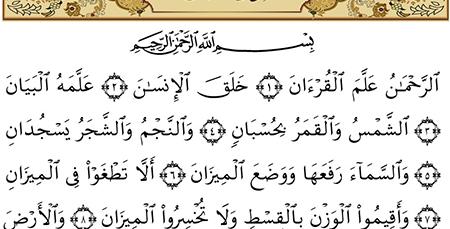 بِسْمِ ٱللَّهِ ٱلرَّحْمَٰنِ ٱلرَّحِيمِ
ٱلرَّحْمَٰنُ عَلَّمَ ٱلْقُرْءَانَ ﴿١﴾ خَلَقَ ٱلْإِنسَٰنَ ﴿٢﴾ عَلَّمَهُ ٱلْبَيَانَ
﴿٣﴾ ٱلشَّمْسُ وَٱلْقَمَرُ بِحُسْبَانٍ ﴿٤﴾ وَٱلنَّجْمُ وَٱلشَّجَرُ يَسْجُدَانِ
﴿٥﴾ وَٱلسَّمَآءَ رَفَعَهَا وَوَضَعَ ٱلْمِيزَانَ ﴿٦﴾ أَلَّا تَطْغَوْا۟ فِى ٱلْمِيزَانِ
﴿٧﴾ وَأَقِيمُوا۟ ٱلْوَزْنَ بِٱلْقِسْطِ وَلَا تُخْسِرُوا۟ ٱلْمِيزَانَ ﴿٨﴾ وَٱلْأَرْضَ